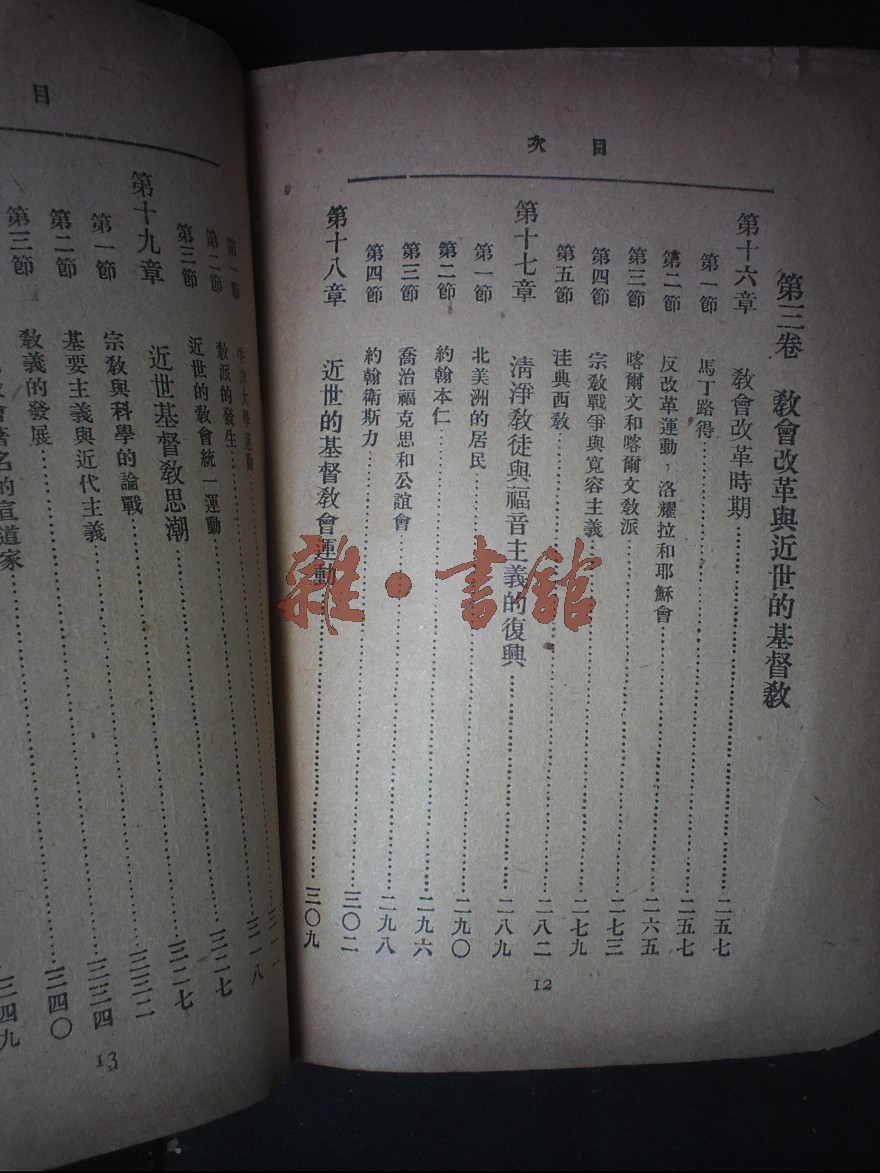 目次
第三卷 教會改革與近世的基督教
第十六章 教會改革時期 二五七
第一節 馬丁路得 二五七
第二節 反改革運動,洛耀拉和耶穌會 二六五
第三節 喀爾文和喀爾文教派 二七三
第四節 宗教戰爭與寬容主義 二七九
第五節 洼典西教 二八二
第十七章 清淨教徒與福音主義的復興 二八九
第一節 北美洲的居民 二九〇
第二節 約翰本仁 二九六
第三節 喬治福克思和公誼會 二九八
第四節 約翰衛斯力 三〇二
第十八章 近世的基督教會運動 三〇九
12
目
第一節 牛津大學運動
第二節 教派的發生 三一八
第三節 近世的教會統一運動 三二七
第十九章 近世基督教思潮 三二七
第一節 宗教與科學的論戰 三三二
第二節 基要主義與近代主義 三三四
第三節 教義的發展 三四〇
著名的宣道家 三四九
13
雜·書館